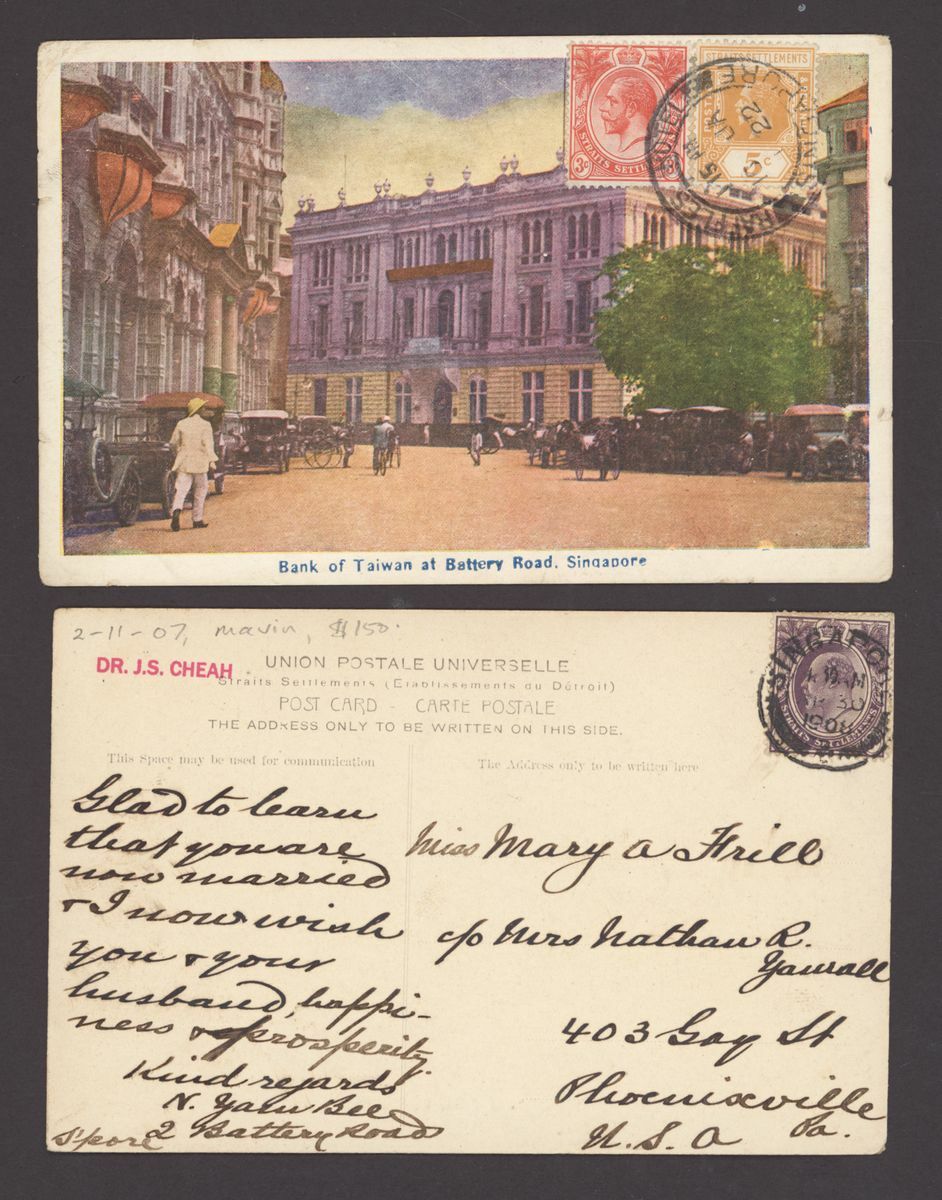 STRAITS SETTLEMENTS
3c
STRAITS SETTLE
POSTAGE
5c
RAFFLES
SINGAPORE
22
Bank of Taiwan at Battery Road. Singapore
2-11-07, mavin, $150.
DR. J.S. CHEAH
UNION POSTALE UNIVERSELLE
Straits Settlements (Etablissements du Détroit)
POST CARD - CARTE POSTALE
THE ADDRESS ONLY TO BE WRITTEN ON THIS SIDE.
This Space may be used for communication
The Address only to be written here
SINGAPORE
30
1908
STRAITS SETTLEMENTS
Glad to learn
that you are
now married
& I now wish
you & your
husband, happi-
ness & prosperity.
Kind regards
N. Yam Bee
2 Battery Road
S'pore
Miss Mary A Frill
c/o Mrs Nathan R.
403 Gay St
Phoenixville
Pa.
U. S. A